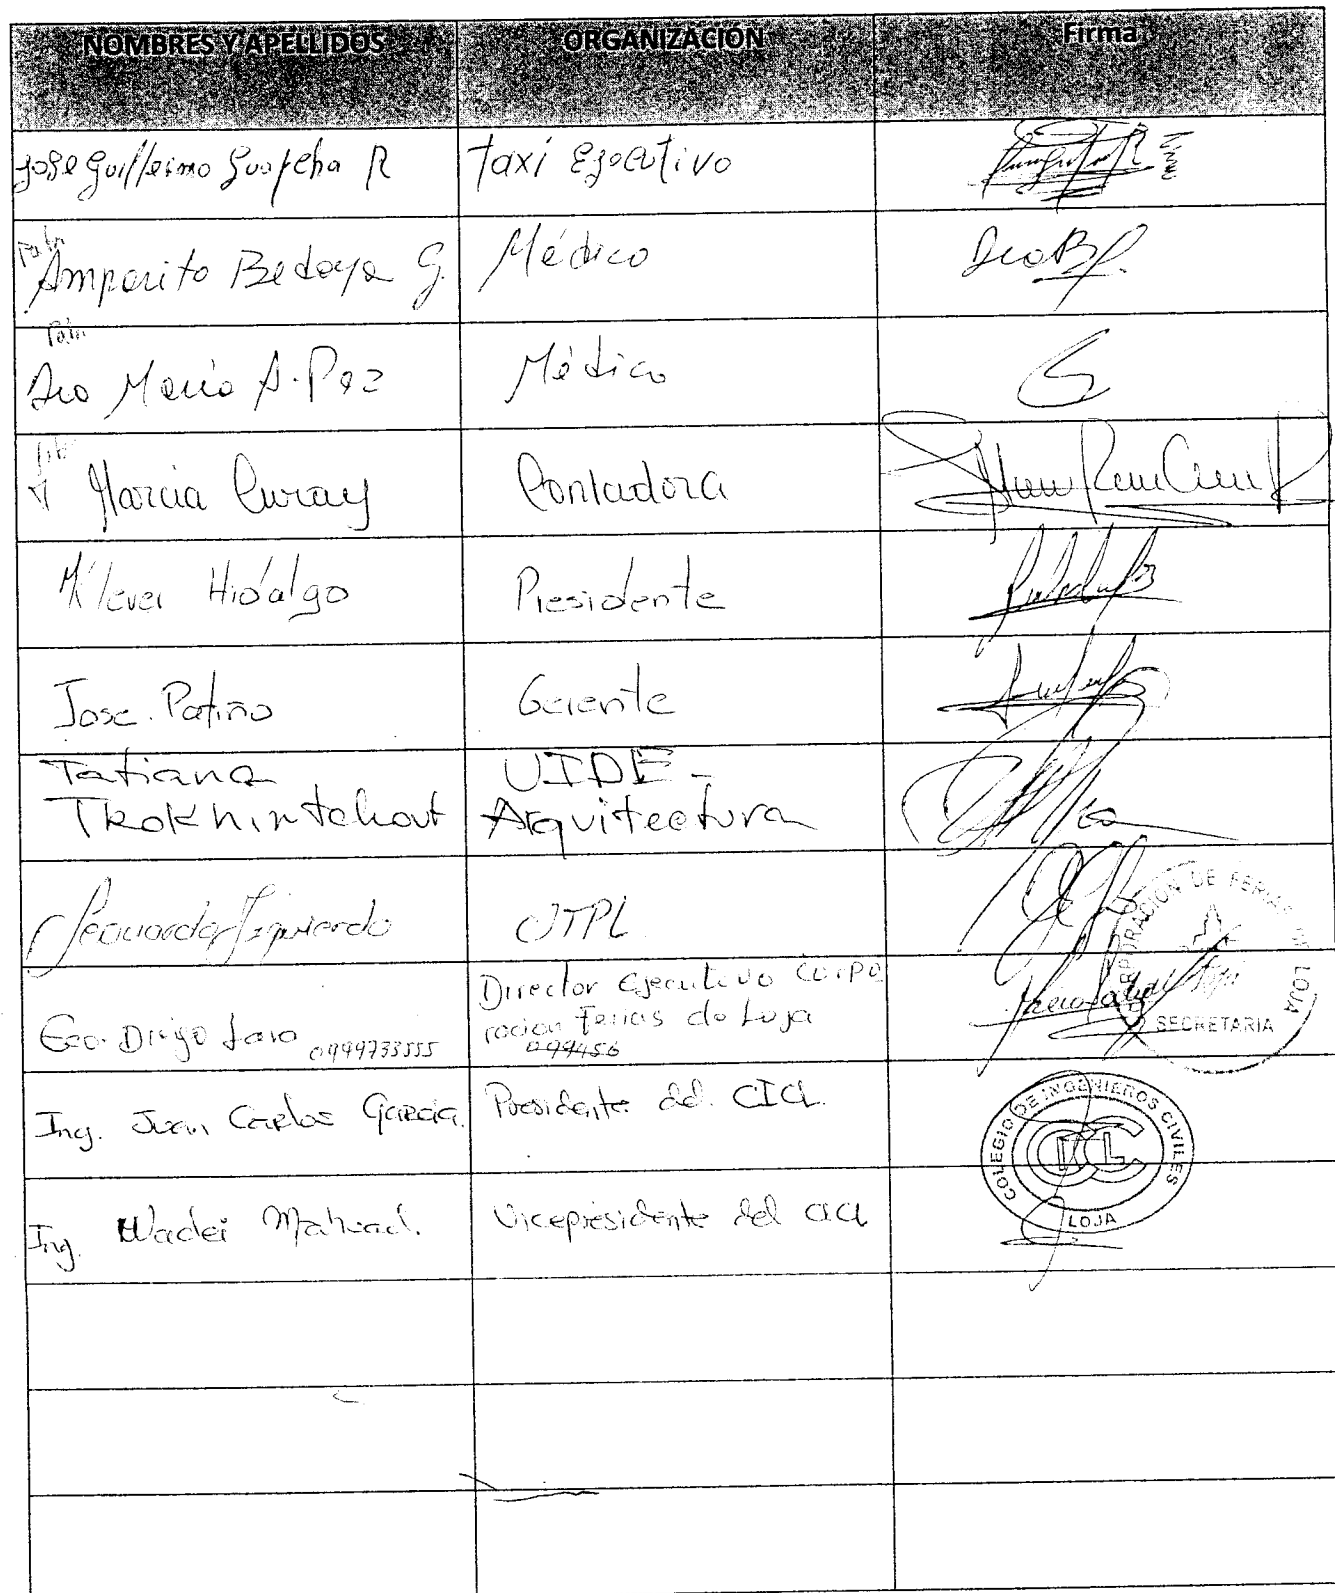 NOMBRES Y APELLIDOS ORGANIZACIÓN Firma
Jose Guillermo R Taxi Ejecutivo
Amparito Bedoya G. Médico
Dra María A. Paz Médico
Marcia Curay Contadora
Klever Hidalgo Presidente
Jose. Patiño Gerente
Tatiana UIDE -
Trokhintchout Arquitectura
Izquierdo UTPL
Director Ejecutivo Corpo
Eco. Diego Lara ración Ferias de Loja
0999733555 099456
CORPORACIÓN DE FERIAS DE LOJA
SECRETARIA
Ing. Juan Carlos García. Presidente del. CICL.
COLEGIO DE INGENIEROS CIVILES
CICL
LOJA
Ing. Mahuad. Vicepresidente del CICL